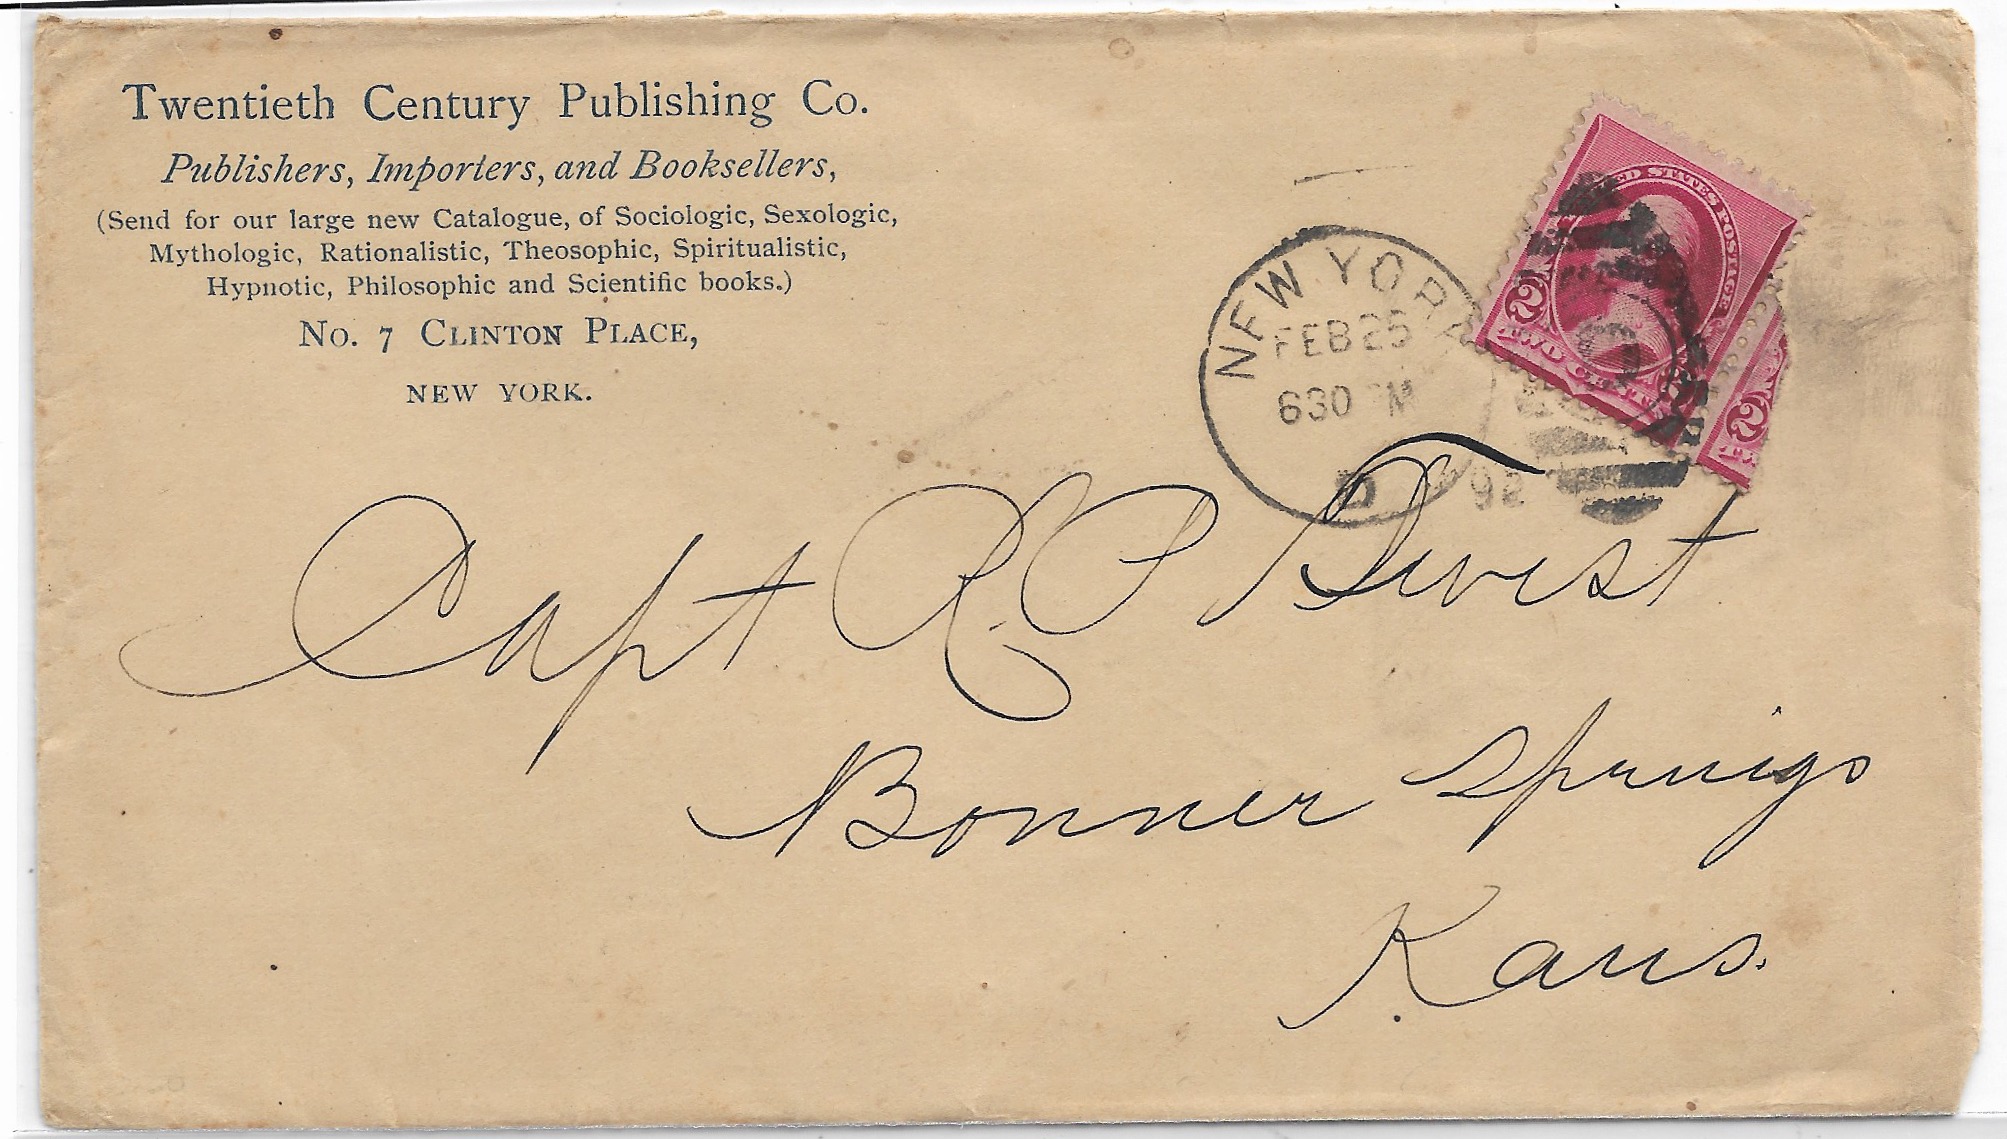 Twentieth Century Publishing Co.
Publishers, Importers, and Booksellers,
(Send for our large new Catalogue, of Sociologic, Sexologic,
Mythologic, Rationalistic, Theosophic, Spiritualistic,
Hypnotic, Philosophic and Scientific books.)
No. 7 Clinton Place,
NEW YORK.
UNITED STATES POSTAGE
2 2
TWO CENTS
2
NEW YORK
FEB 25
630 M
D
92
Capt R. P. Twist
Bonner Springs
Kans.